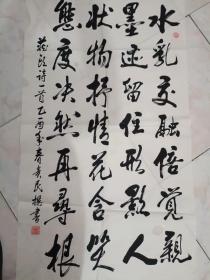 水乳交融倍觉親
墨迹留住形影人
状物抒情花含笑
態度决然再尋根
录詩一首乙酉年春黄民撰書